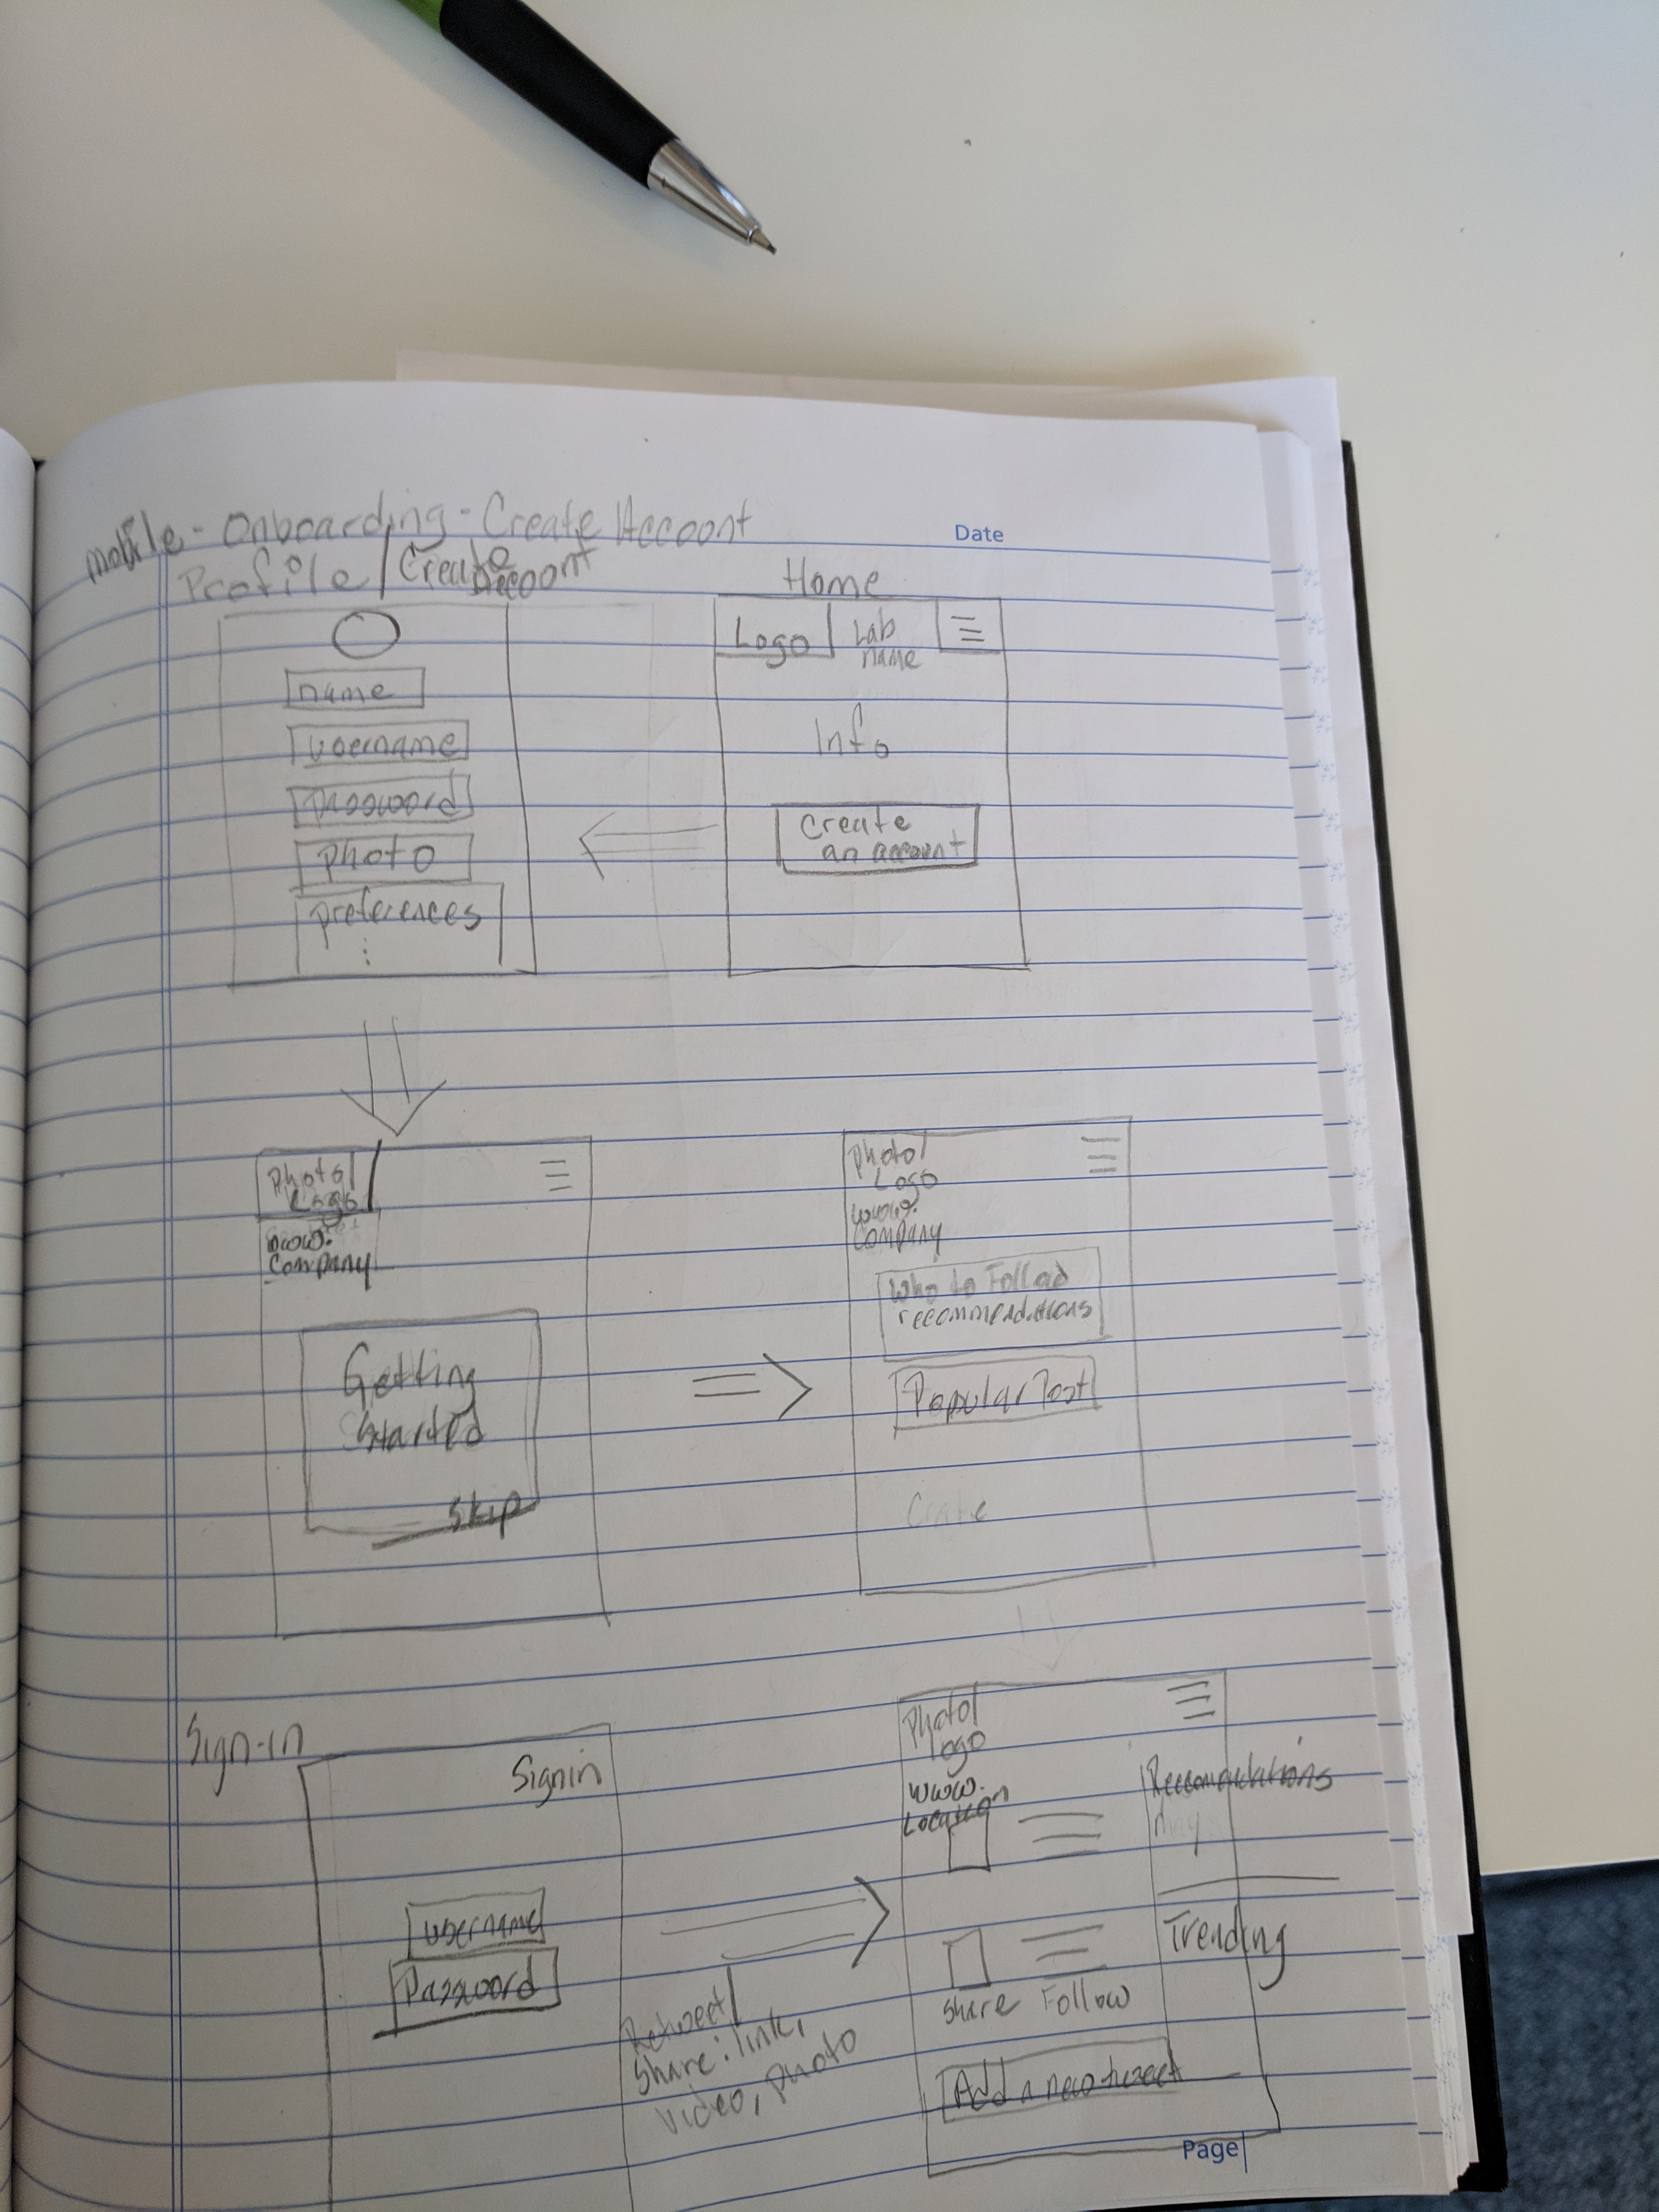 mobile - Onboarding - Create Account
Date
Profile / Create
Account
Home
name
username
Password
photo
preferences
Logo
Lab
name
Info
Create
an account
Photo/
Logo
www.
Company
Getting
Started
Skip
Photo/
Logo
www.
Company
Who to Follow
recommendations
Popular Post
Sign-in
Signin
username
Password
Retweet/
Share: link,
video, photo
Photo/
Logo
www.
Location
Recommendations
Trending
Share Follow
Add a new tweet
Page